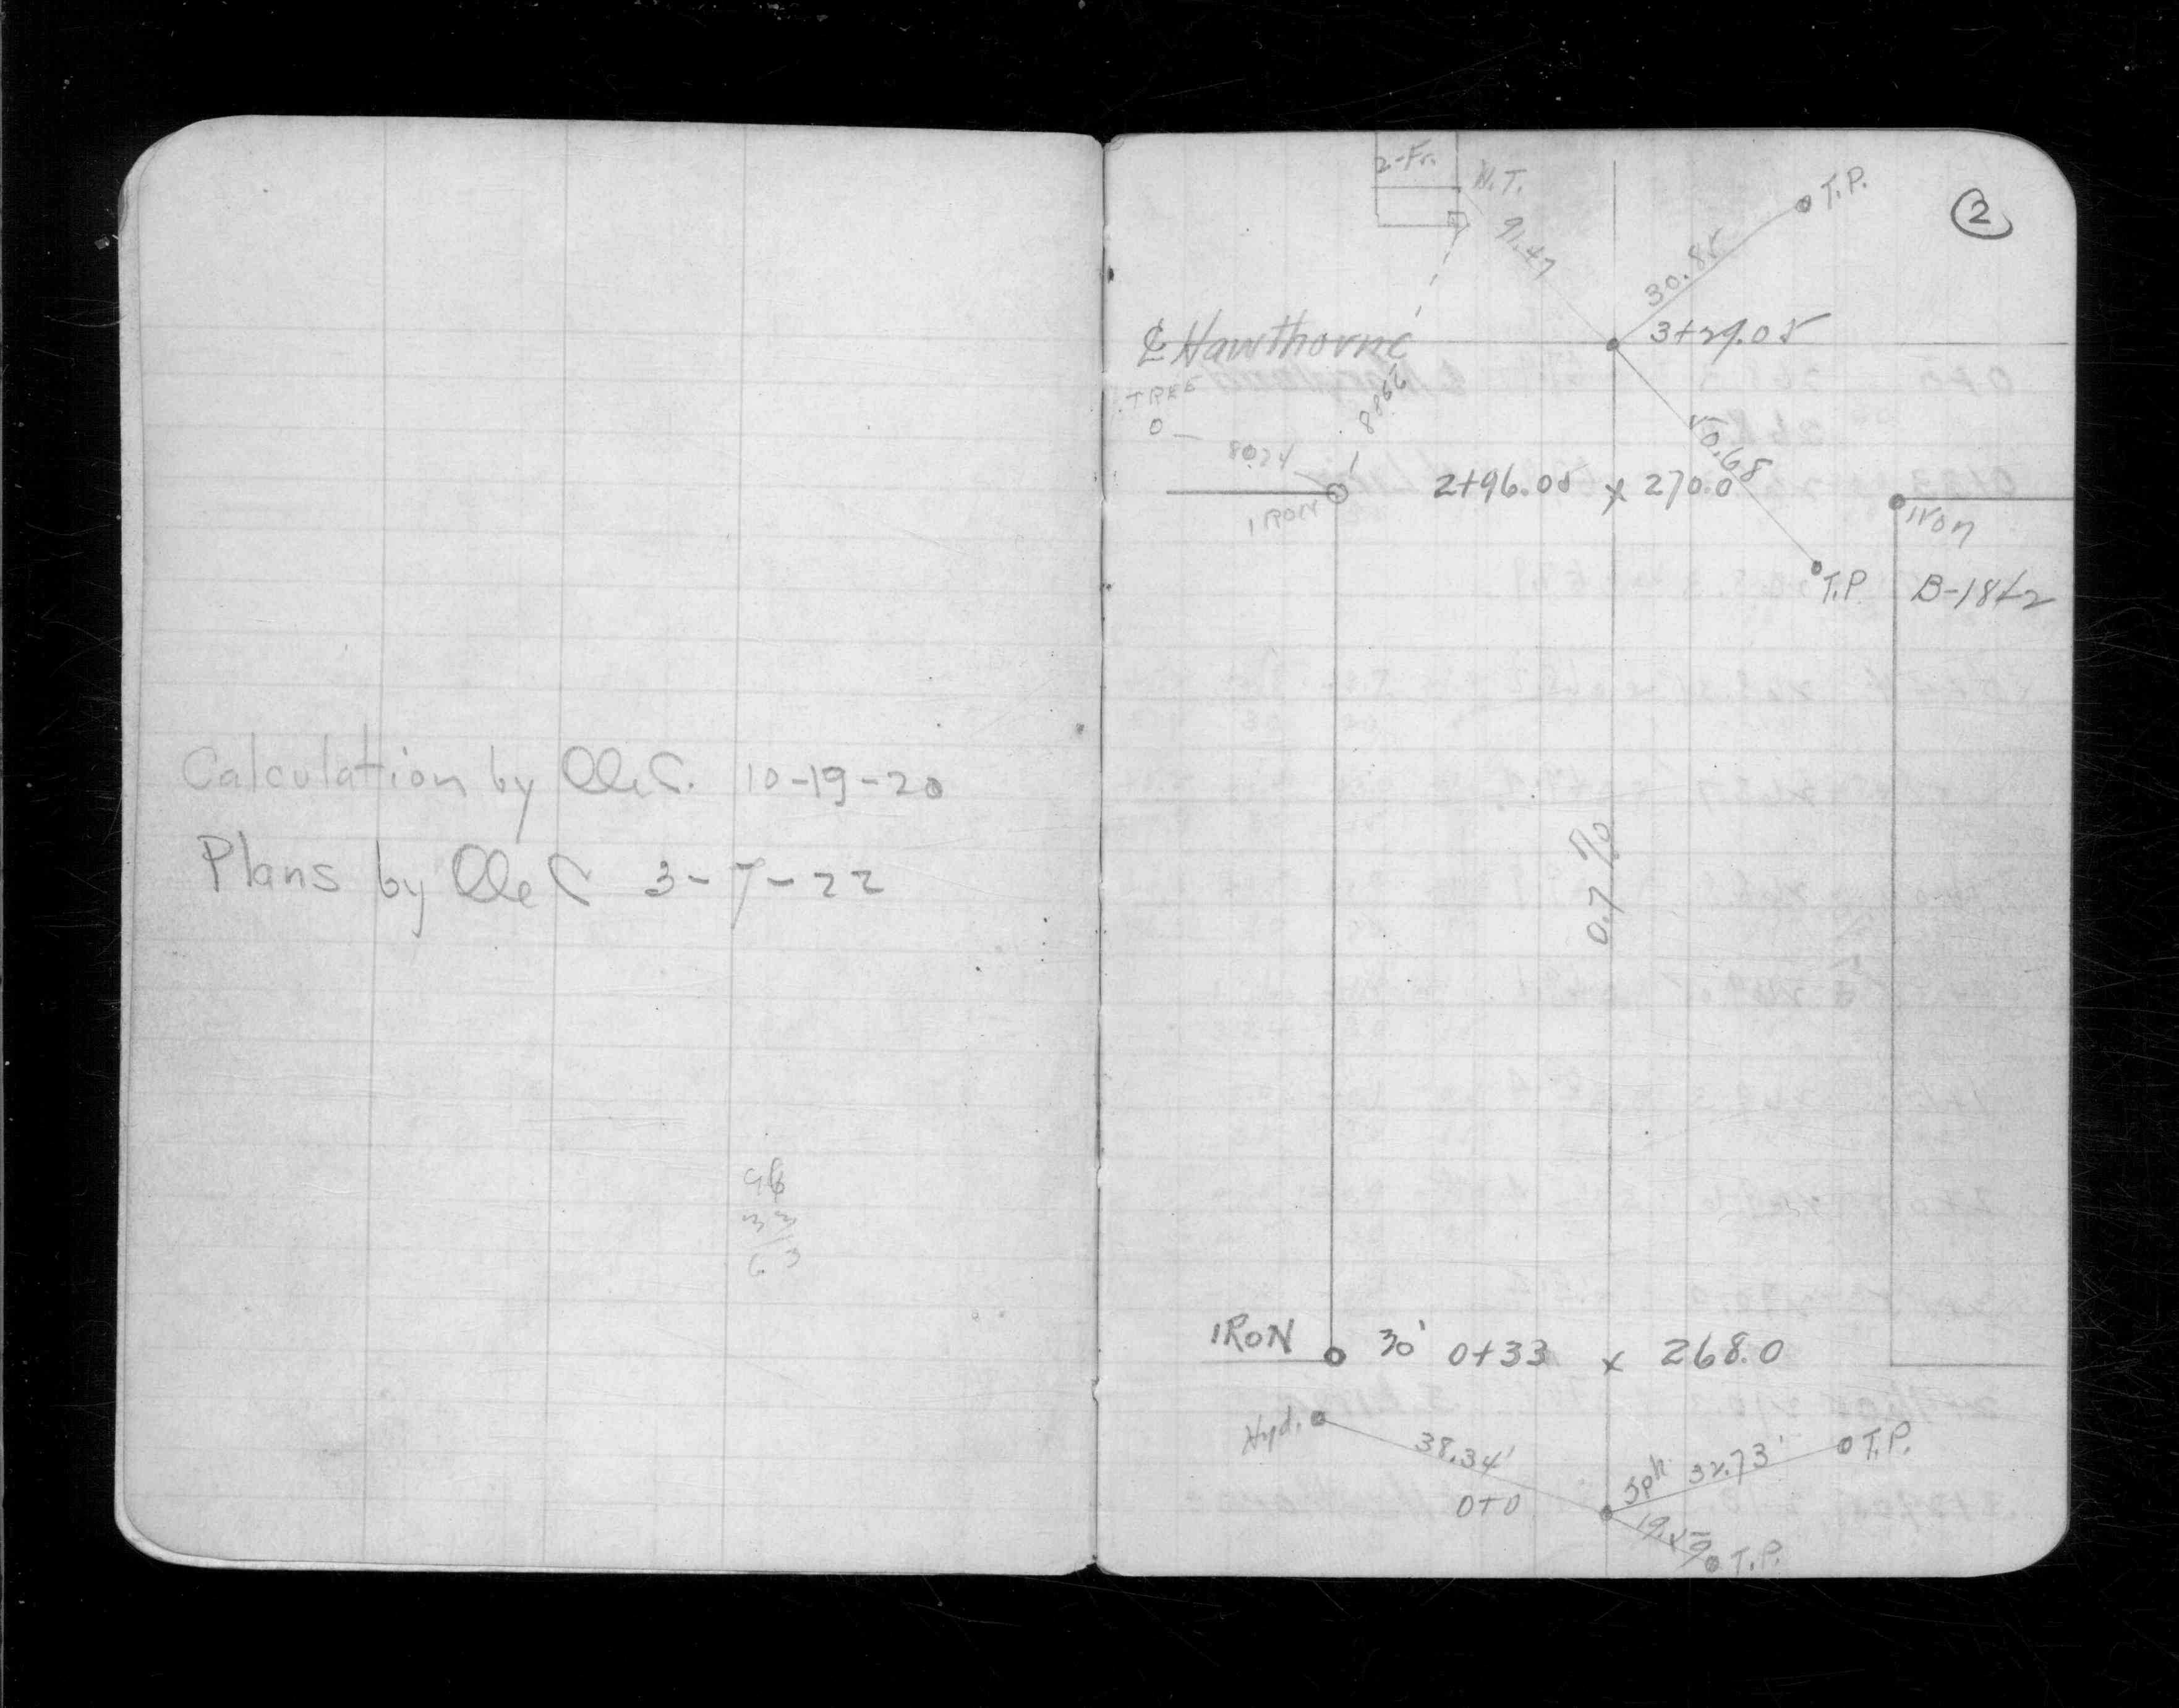 Calculation by 10-19-20
Plans by 3-7-22
96
33
63
2
2-Fr.
N.T.
T.P.
91.47
30.85
℄ Hawthorne
3+29.05
TREE
80.24
50.68
2+96.05 x 270.0
IRON
Iron
T.P.
0.7%
IRON 30' 0+33 x 268.0
Hyd.
38.34'
Spk 32.73'
T.P.
0+0
T.P.